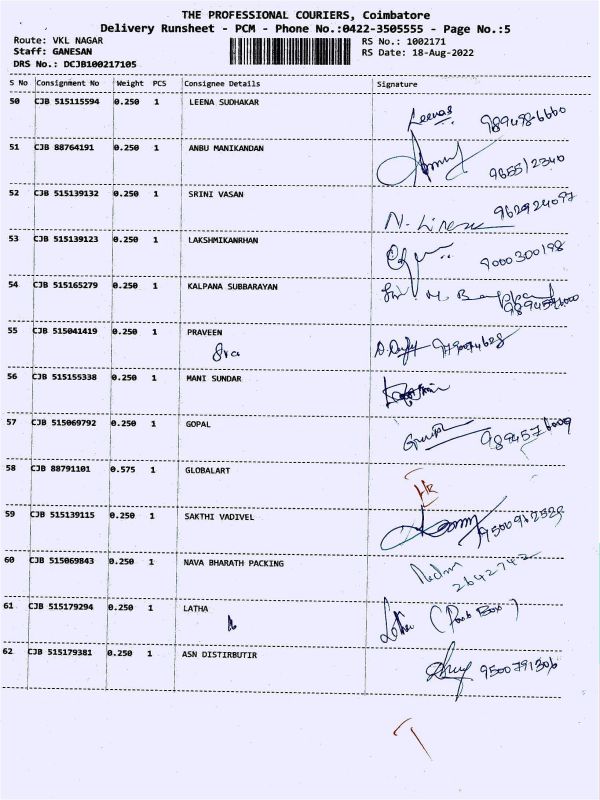 THE PROFESSIONAL COURIERS, Coimbatore
Delivery Runsheet - PCM - Phone No.:0422-3505555 - Page No.:5
Route: VKL NAGAR
RS No.: 1002171
Staff: GANESAN
RS Date: 18-Aug-2022
DRS No.: DCJB100217105
S No Consignment No Weight PCS Consignee Details Signature
50 CJB 515115594 0.250 1 LEENA SUDHAKAR Leenas
51 CJB 88764191 0.250 1 ANBU MANIKANDAN 965512340
52 CJB 515139132 0.250 1 SRINI VASAN 9629924097
53 CJB 515139123 0.250 1 LAKSHMIKANRHAN 9000300198
54 CJB 515165279 0.250 1 KALPANA SUBBARAYAN
55 CJB 515041419 0.250 1 PRAVEEN
56 CJB 515155338 0.250 1 MANI SUNDAR
57 CJB 515069792 0.250 1 GOPAL 9894576009
58 CJB 88791101 0.575 1 GLOBALART
59 CJB 515139115 0.250 1 SAKTHI VADIVEL 9500912528
60 CJB 515069843 0.250 1 NAVA BHARATH PACKING 2642742
61 CJB 515179294 0.250 1 LATHA Latha
62 CJB 515179381 0.250 1 ASN DISTIRBUTIR 9500791306